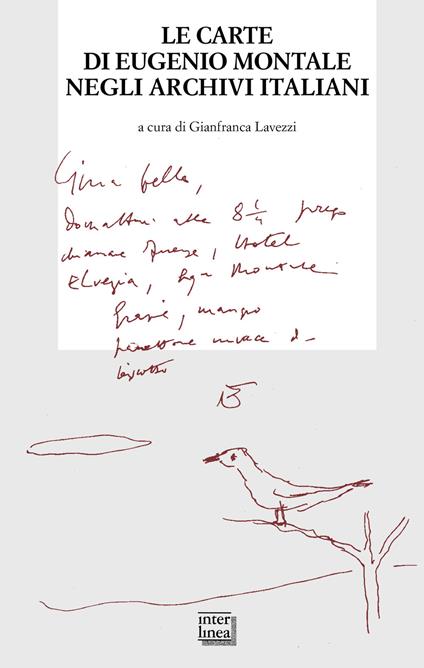 LE CARTE
DI EUGENIO MONTALE
NEGLI ARCHIVI ITALIANI
a cura di Gianfranca Lavezzi
Gina bella,
domattina alle 8 1/4 prego
chiamare Firenze, Hotel
Elvezia, Sigr Montale
Grazie, mangio
panettone invece di
biscotto
inter
linea